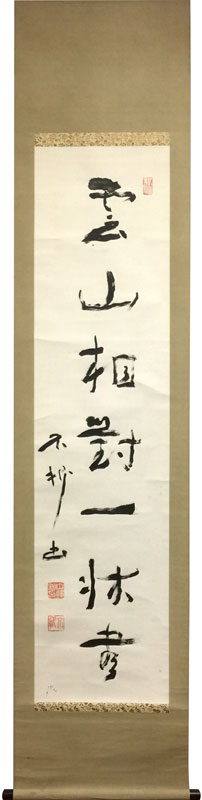 雲山相對一牀書
不折書